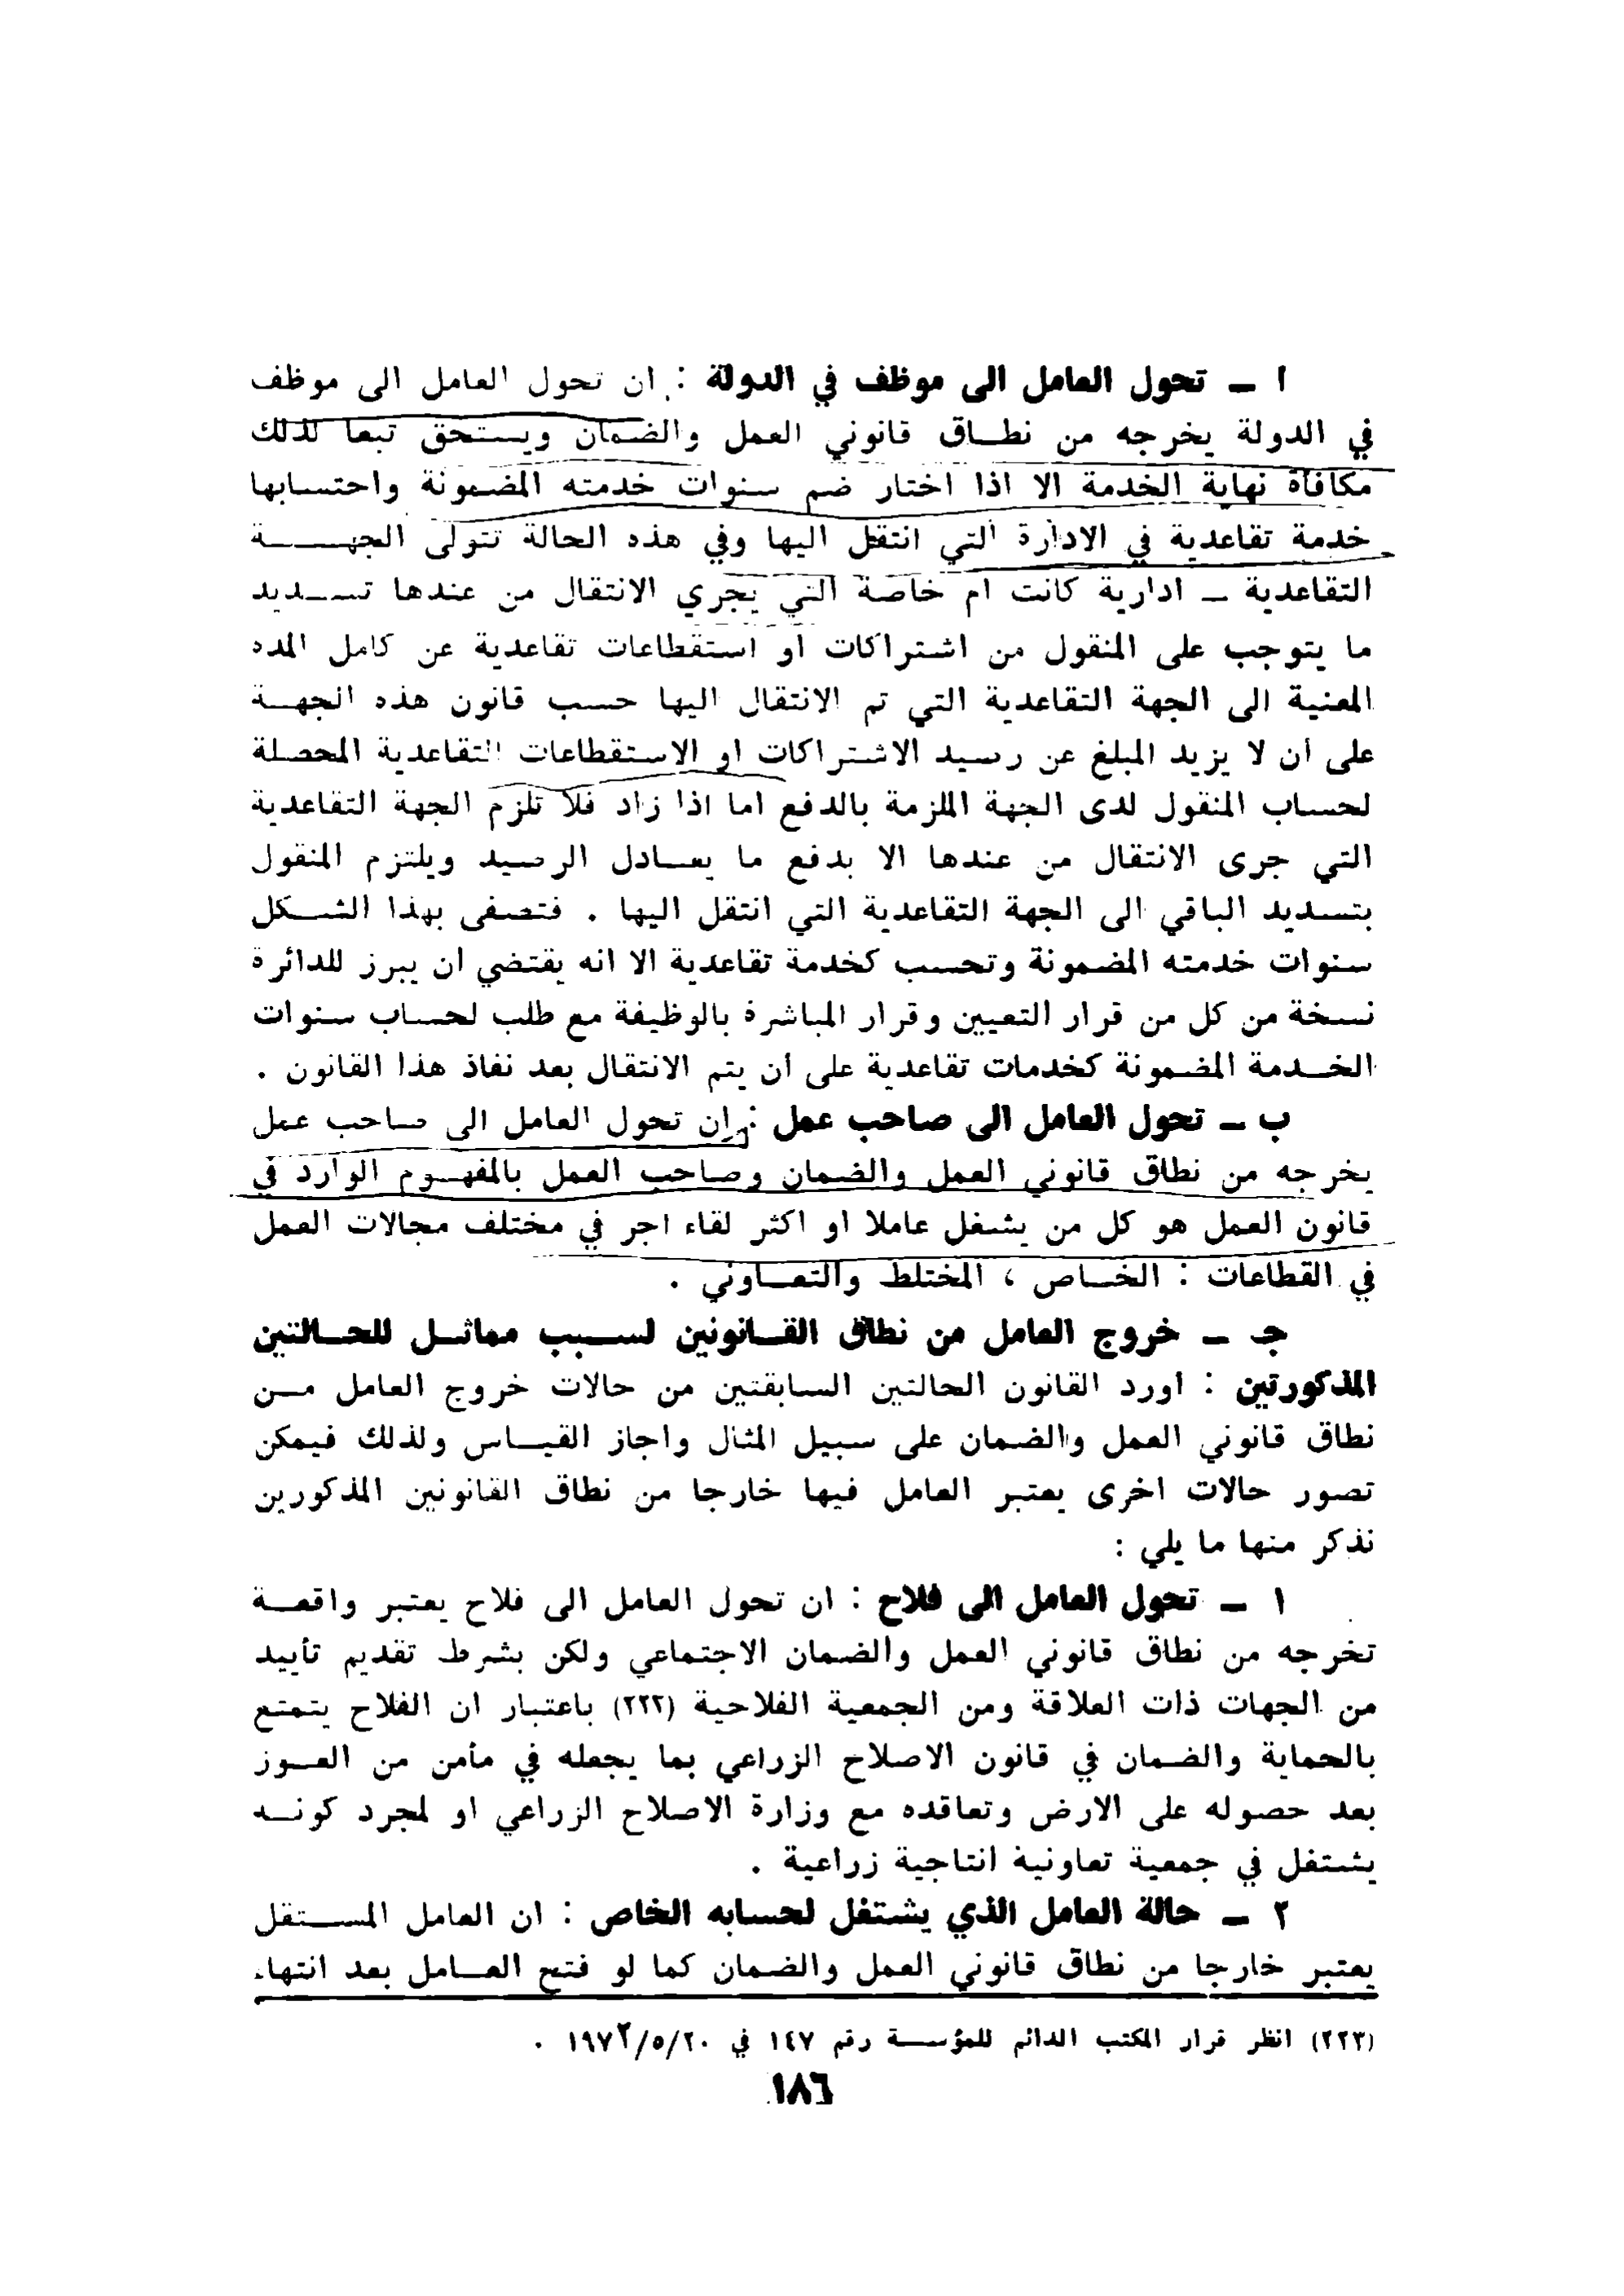 ا ــ تحول العامل الى موظف في الدولة : ان تحول العامل الى موظف
في الدولة يخرجه من نطــاق قانوني العمل والضمان ويستحق تبعا لذلك
مكافأة نهاية الخدمة الا اذا اختار ضم سنوات خدمته المضمونة واحتسابها
خدمة تقاعدية في الادارة التي انتقل اليها وفي هذه الحالة تتولى الجهــــة
التقاعدية ــ ادارية كانت ام خاصة التي يجري الانتقال من عندها تســديد
ما يتوجب على المنقول من اشتراكات او استقطاعات تقاعدية عن كامل المدة
المعنية الى الجهة التقاعدية التي تم الانتقال اليها حسب قانون هذه الجهــة
على ان لا يزيد المبلغ عن رصيد الاشتراكات او الاستقطاعات التقاعدية المحصلة
لحساب المنقول لدى الجهة الملزمة بالدفع اما اذا زاد فلا تلزم الجهة التقاعدية
التي جرى الانتقال من عندها الا بدفع ما يعــادل الرصيد ويلتزم المنقول
بتسديد الباقي الى الجهة التقاعدية التي انتقل اليها . فتصفى بهذا الشــكل
سنوات خدمته المضمونة وتحسب كخدمة تقاعدية الا انه يقتضي ان يبرز للدائرة
نسخة من كل من قرار التعيين وقرار المباشرة بالوظيفة مع طلب لحساب سنوات
الخــدمة المضمونة كخدمات تقاعدية على ان يتم الانتقال بعد نفاذ هذا القانون .
ب ــ تحول العامل الى صاحب عمل : ان تحول العامل الى صاحب عمل
يخرجه من نطاق قانوني العمل والضمان وصاحب العمل بالمفهــوم الوارد في
قانون العمل هو كل من يشغل عاملا او اكثر لقاء اجر في مختلف مجالات العمل
في القطاعات : الخــاص ، المختلط والتعــاوني .
جـ ــ خروج العامل من نطاق القــانونين لســبب مماثــل للحــالتين
المذكورتين : اورد القانون الحالتين السابقتين من حالات خروج العامل مــن
نطاق قانوني العمل والضمان على سبيل المثال واجاز القيــاس ولذلك فيمكن
تصور حالات اخرى يعتبر العامل فيها خارجا من نطاق القانونين المذكورين
نذكر منها ما يلي :
١ ــ تحول العامل الى فلاح : ان تحول العامل الى فلاح يعتبر واقعــة
تخرجه من نطاق قانوني العمل والضمان الاجتماعي ولكن بشرط تقديم تأييد
من الجهات ذات العلاقة ومن الجمعية الفلاحية (٢٢٢) باعتبار ان الفلاح يتمتع
بالحماية والضمان في قانون الاصلاح الزراعي بما يجعله في مأمن من العــوز
بعد حصوله على الارض وتعاقده مع وزارة الاصلاح الزراعي او لمجرد كونــه
يشتغل في جمعية تعاونية انتاجية زراعية .
٢ ــ حالة العامل الذي يشتغل لحسابه الخاص : ان العامل المســتقل
يعتبر خارجا من نطاق قانوني العمل والضمان كما لو فتح العــامل بعد انتهاء
(٢٢٣) انظر قرار المكتب الدائم للمؤسسة رقم ١٤٧ في ١٩٧٢/٥/٢٠ .
١٨٦